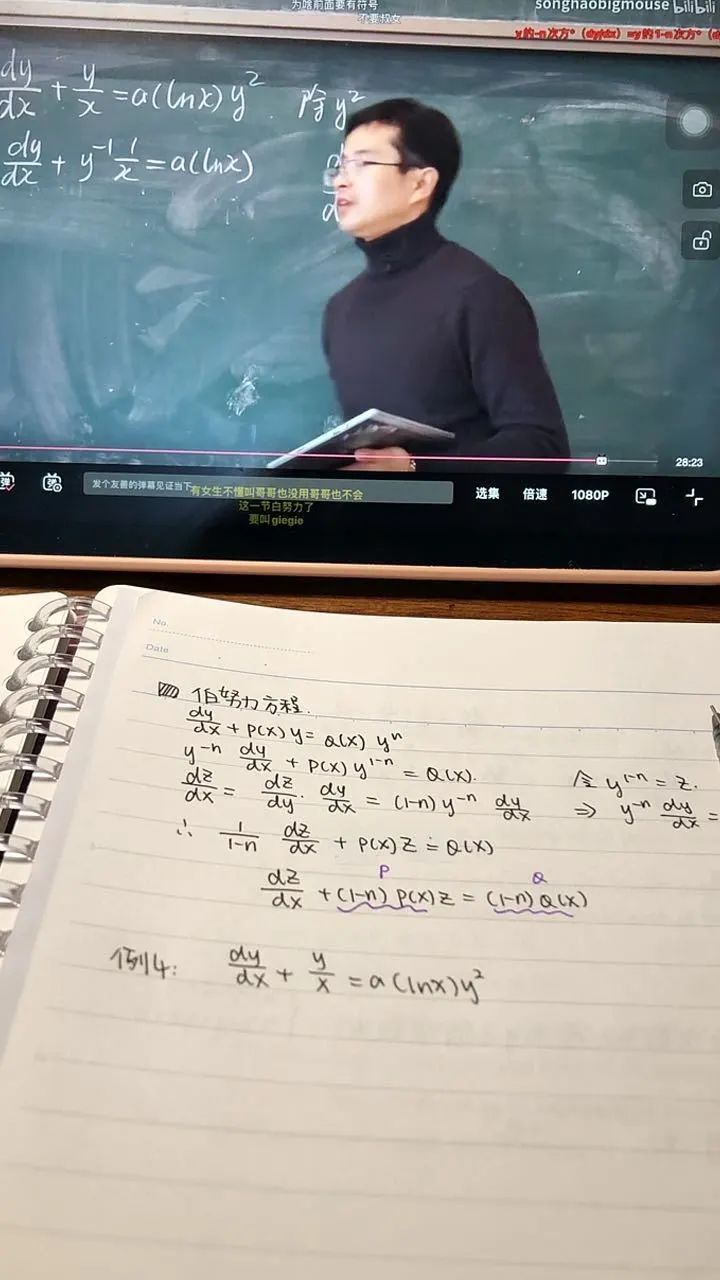 为啥前面要有符号
不要叔女
songhaobigmouse bilibili
y的-n次方*（dy/dx）=y的1-n次方*（d
dy/dx + y/x = a(lnx)y² 除y²
dy/dx + y⁻¹ 1/x = a(lnx)
28:23
发个友善的弹幕见证当下
有女生不懂叫哥哥也没用哥哥也不会
这一节白努力了
要叫giegie
选集 倍速 1080P
No.
Date
伯努力方程.
dy/dx + P(x)y = Q(x) yⁿ
y⁻ⁿ dy/dx + P(x)y¹⁻ⁿ = Q(x). 令 y¹⁻ⁿ = z.
dz/dx = dz/dy · dy/dx = (1-n)y⁻ⁿ dy/dx ⇒ y⁻ⁿ dy/dx =
∴ 1/(1-n) dz/dx + P(x)z = Q(x)
P Q
dz/dx + (1-n) P(x)z = (1-n) Q(x)
例4: dy/dx + y/x = a(lnx)y²